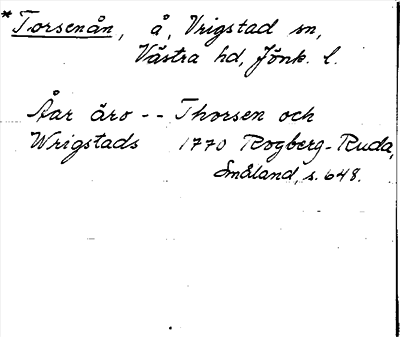 *Torsenån, å, Vrigstad sn,
Västra hd, Jönk. l.
Åar äro -- Thorsen och
Wrigstads 1770 Rogberg-Ruda,
Småland, s. 648.